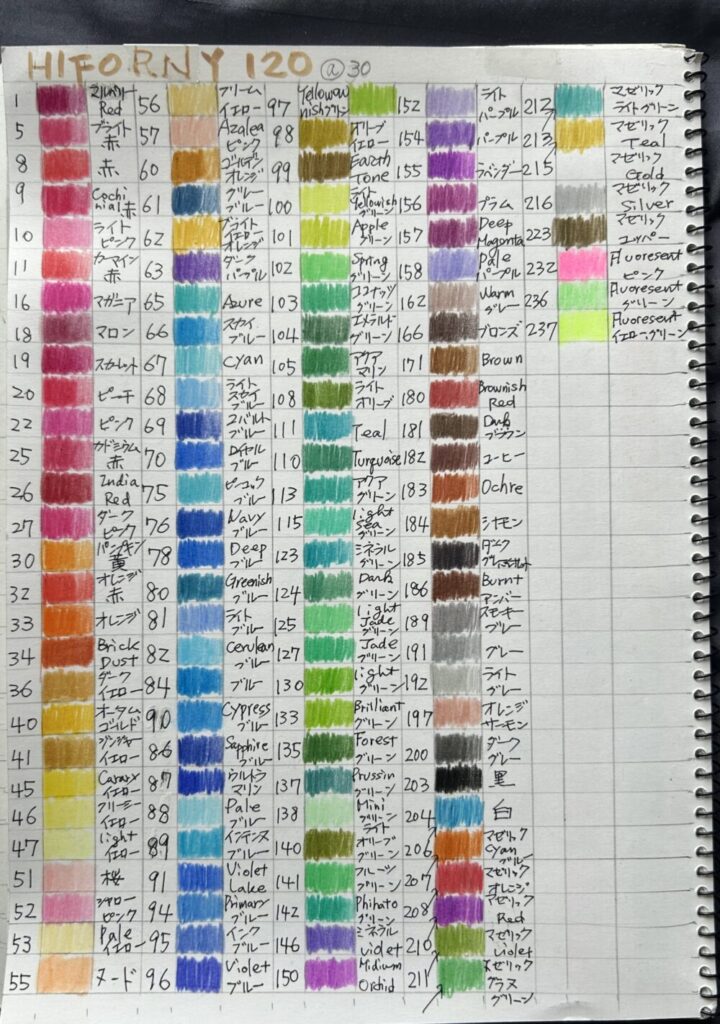 HIFORNY 120 @30
1
Red
5
ブライト
赤
8
赤
9
Cochi
nial赤
10
ライト
ピンク
11
カーマイン
赤
16
マガニア
18
マロン
19
スカーレット
20
ピーチ
22
ピンク
25
カドミウム
赤
26
India
Red
27
ダーク
ピンク
30
パンプキン
黄
32
オレンジ
赤
33
オレンジ
34
Brick
Dust
36
ダーク
イエロー
40
オータム
ゴールド
41
ジンジャー
イエロー
45
Canary
イエロー
46
クリーミー
イエロー
47
light
イエロー
51
桜
52
シャロー
ピンク
53
Pale
イエロー
55
ヌード
56
クリーム
イエロー
57
Azalea
ピンク
60
オレンジ
61
グレー
ブルー
62
ブライト
イエロー
オレンジ
63
ダーク
パープル
65
Azure
66
スカイ
ブルー
67
Cyan
68
ライト
スカイ
ブルー
69
コバルト
ブルー
70
ロイヤル
ブルー
75
ピーコック
ブルー
76
Navy
ブルー
78
Deep
ブルー
80
Greenish
ブルー
81
ライト
ブルー
82
Cerulean
ブルー
84
ブルー
90
Cypress
ブルー
86
Sapphire
ブルー
87
ウルトラ
マリン
88
Pale
ブルー
89
インテンス
ブルー
91
Violet
Lake
94
Primary
ブルー
95
インク
ブルー
96
Violet
ブルー
97
Yelloww
nishグリーン
98
オリーブ
イエロー
99
Earth
Tone
100
ライト
Yellowish
グリーン
101
Apple
グリーン
102
Spring
グリーン
103
ココナッツ
グリーン
104
エメラルド
グリーン
105
アクア
マリン
108
ライト
オリーブ
111
Teal
110
Turquoise
113
アクア
グリーン
115
light
sea
グリーン
123
ミネラル
グリーン
124
Dark
グリーン
125
light
Jade
グリーン
127
Jade
グリーン
130
light
グリーン
133
Brilliant
グリーン
135
Forest
グリーン
137
Prussin
グリーン
138
Mini
グリーン
140
ライト
オリーブ
グリーン
141
フルーツ
グリーン
142
Phihato
グリーン
146
ミネラル
violet
150
Midium
Orchid
152
ライト
パープル
154
パープル
155
ラベンダー
156
プラム
157
Deep
Magonta
158
Pale
パープル
162
Warm
グレー
166
ブロンズ
171
Brown
180
Brownish
Red
181
Dark
ブラウン
182
コーヒー
183
Ochre
184
シナモン
185
ダーク
186
Burnt
アンバー
189
スモーキー
グレー
191
グレー
192
ライト
グレー
197
オレンジ
サーモン
200
ダーク
グレー
203
黒
204
白
206
マゼリック
Cyan
ブルー
207
マゼリック
オレンジ
208
マゼリック
Red
210
マゼリック
violet
211
メゼリック
グラス
グリーン
212
マゼリック
ライトグリーン
213
マゼリック
Teal
215
マゼリック
Gold
216
マゼリック
Silver
223
マゼリック
コッパー
232
Fluoresent
ピンク
236
Fluoresent
グリーン
237
Fluoresent
イエローグリーン